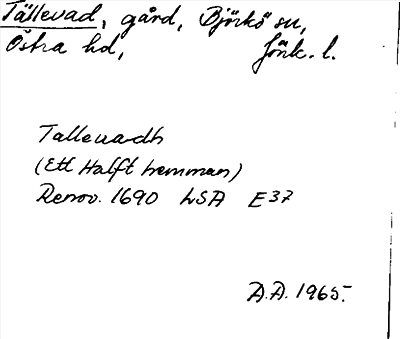 Tällevad, gård, Björkö sn,
Östra hd, Jönk. l.
Tallevadh
(Ett Halft hemman)
Renov. 1690 LSA E37
A.A. 1965.